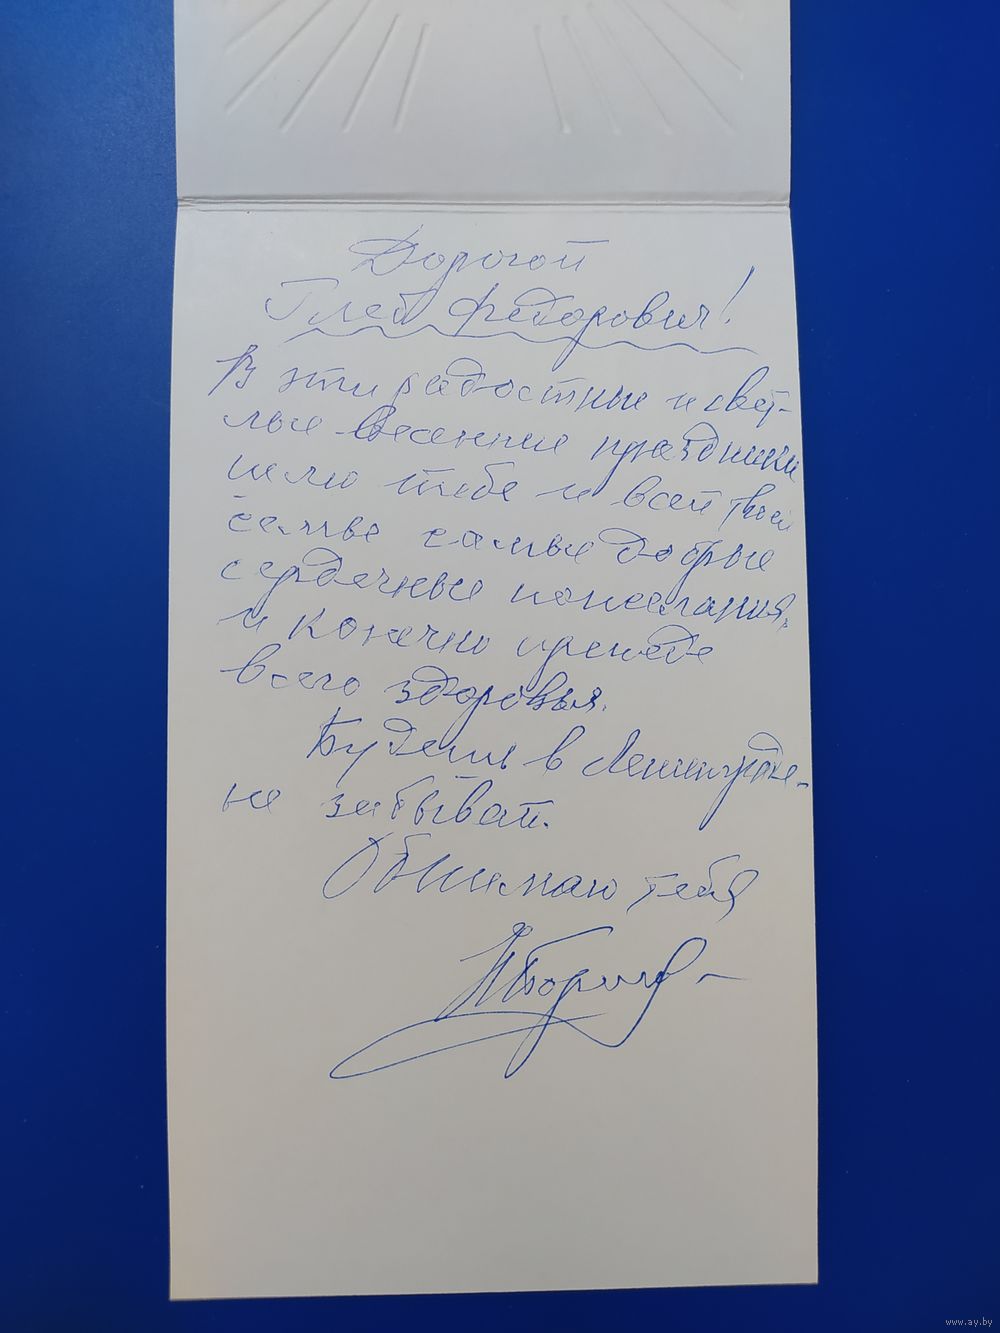 Дорогой
Глеб Федорович!
В эти радостные и свет-
лые весенние праздники
шлю тебе и всей твоей
семье самые добрые
сердечные пожелания,
и конечно прежде
всего здоровья.
Будешь в Ленинграде -
не забывай.
Обнимаю тебя
www.ay.by